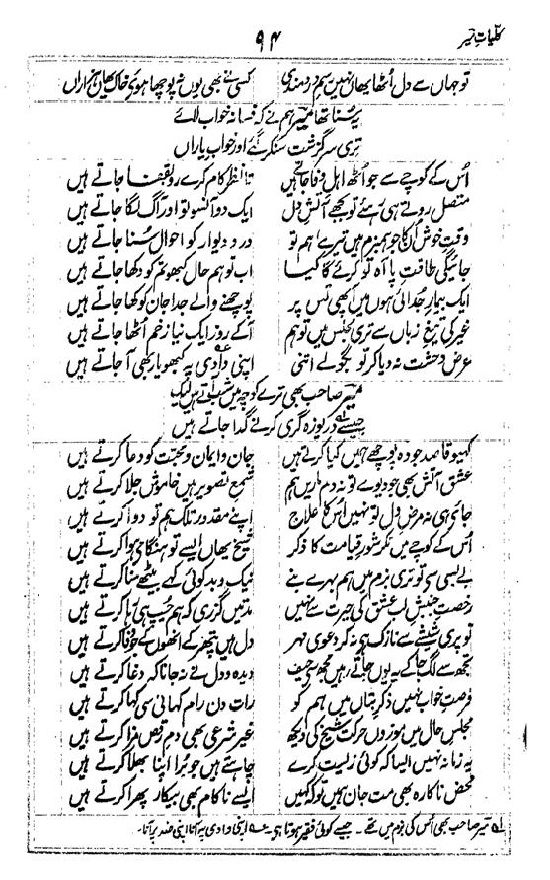 کلیاتِ میر
۹۴
تو جہاں سے دل اُٹھا یھاں نہیں رسمِ دردمندی کسی نے بھی یوں نہ پوچھا ہوئے خاک یھاں ہزاراں
یہ سنا تھا میر ہم نے کہ فسانہ خواب لائے
تری سرگزشت سنکر گئے اور خوابِ یاراں
اُس کے کوچے سے جو اُٹھ اہلِ وفا جاتے ہیں تا نظر کام کرے رو بقفا جاتے ہیں
متصل روتے ہی رہئے تو بجھے آتشِ دل ایک دو آنسو تو اور آگ لگا جاتے ہیں
وقتِ خوش اُن کا جو ہم بزم ہیں تیرے ہم تو در و دیوار کو احوال سُنا جاتے ہیں
جائیگی طاقتِ پا آہ تو کرئے گا کیا اب تو ہم حال کبھو تم کو دکھا جاتے ہیں
ایک بیمارِ جُدائی ہوں میں آپھی تس پر پوچھنے والے جدا جان کو کھا جاتے ہیں
غیر کی تیغِ زباں سے تری مجلس میں تو ہم آکے روز ایک نیا زخم اُٹھا جاتے ہیں
عرضِ وحشت نہ دیا کر تو بگولے اتنی اپنی وادی پہ کبھو یار بھی آ جاتے ہیں
میر صاحب بھی ترے کوچہ میں شب آتے ہیں لیک
جیسے دریوزہ گری کرنے گدا جاتے ہیں
کہیو قاصد جو وہ پوچھے ہمیں کیا کرتے ہیں جان و ایمان و محبت کو دعا کرتے ہیں
عشق آتش بھی جو دیوے تو نہ دم ماریں ہم شمعِ تصویر ہیں خاموش جلا کرتے ہیں
جائے ہی نہ مرضِ دل تو نہیں اُس کا علاج اپنے مقدور تلک ہم تو دوا کرتے ہیں
اُس کے کوچے میں نہ کر شورِ قیامت کا ذکر شیخ یھاں ایسے تو ہنگامے ہوا کرتے ہیں
بے بسی سے تو تری بزم میں ہم بہرے بنے نیک و بد کوئی کہے بیٹھے سُنا کرتے ہیں
رخصتِ جنبشِ لب عشق کی حیرت سے نہیں مدتیں گزریں کہ ہم چُپ ہی رہا کرتے ہیں
تو پری شیشے سے نازک ہی نہ کر دعویِ مہر دل ہیں پتھر کے اُنھوں کے جو وفا کرتے ہیں
تجھ سے لگ جا کے یہ یوں جاتے رہیں مجھ سے حیف دیدہ و دل نے نہ جانا کہ دغا کرتے ہیں
فرصتِ خواب نہیں ذکرِ بتاں میں ہم کو رات دن رام کہانی سی کہا کرتے ہیں
مجلسِ حال میں موزوں حرکت شیخ کی دیکھ غیر شرعی بھی دمِ رقص مزا کرتے ہیں
یہ زمانہ نہیں ایسا کہ کوئی زیست کرے چاہتے ہیں جو بُرا اپنا بھلا کرتے ہیں
محض ناکارہ بھی مت جان ہمیں تو کہ کہیں ایسے ناکام بھی بیکار پھرا کرتے ہیں
میر صاحب بھی اُس کی بزم میں تھے۔ جیسے کوئی فقیر ہوتا ہو۔ اپنی وادی پہ آنا اپنی ضد پر آنا۔